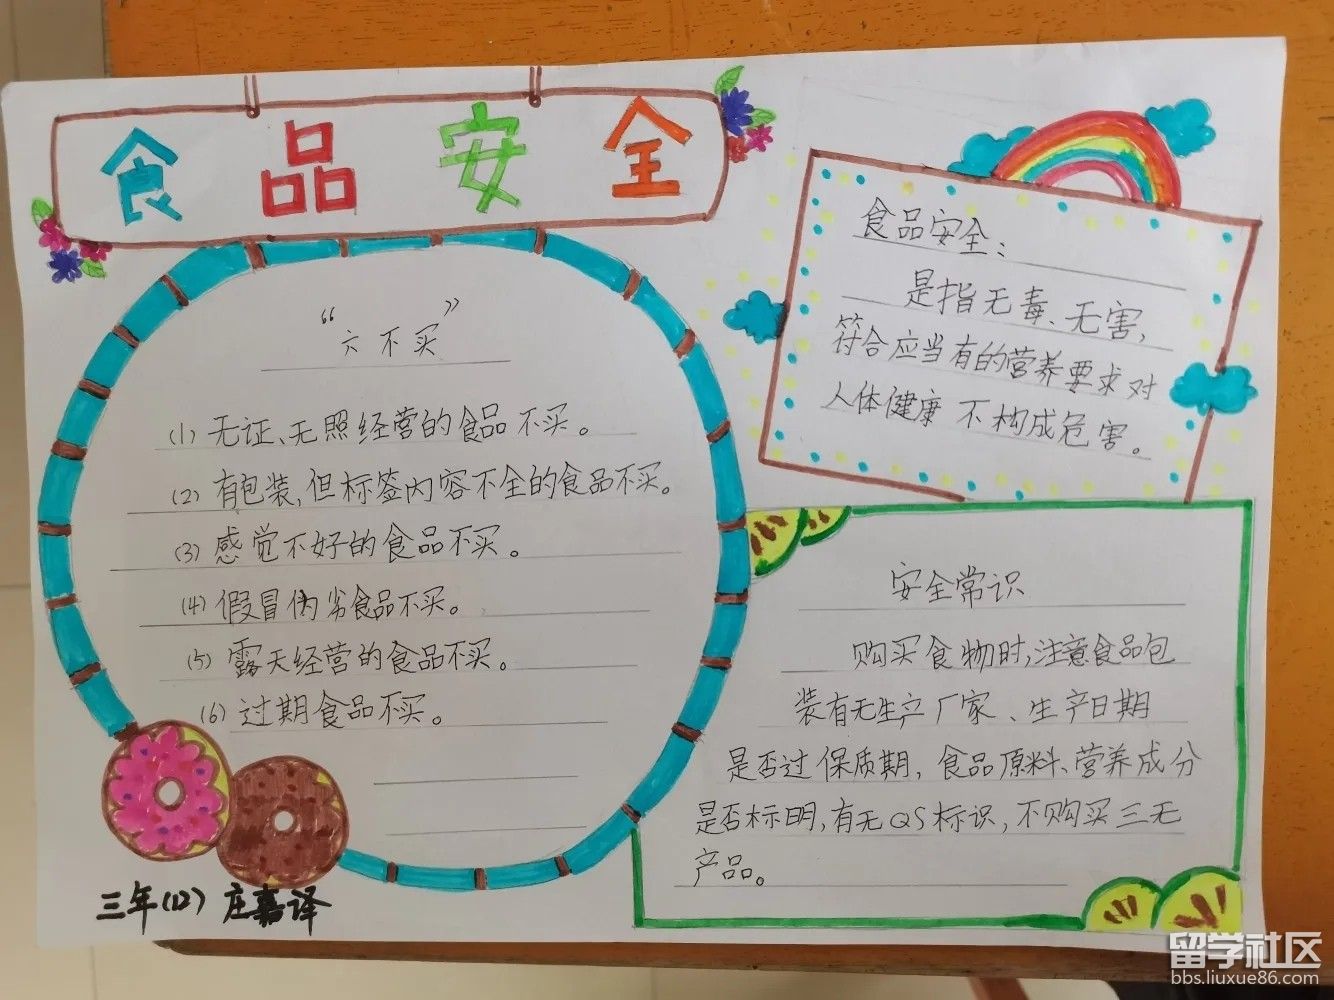 食品安全
“六不买”
(1) 无证、无照经营的食品不买。
(2) 有包装,但标签内容不全的食品不买。
(3) 感觉不好的食品不买。
(4) 假冒伪劣食品不买。
(5) 露天经营的食品不买。
(6) 过期食品不买。
三年(12) 庄嘉译
食品安全:
是指无毒、无害,
符合应当有的营养要求对
人体健康不构成危害。
安全常识
购买食物时,注意食品包
装有无生产厂家、生产日期
是否过保质期,食品原料、营养成分
是否标明,有无QS标识,不购买三无
产品。
留学社区
bbs.liuxue86.com